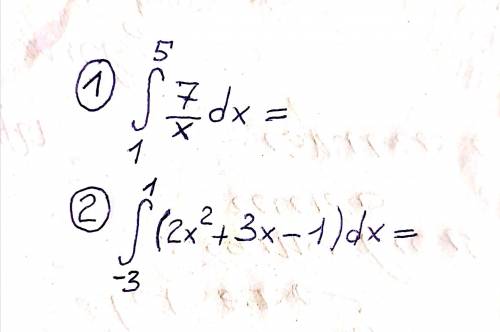 ① ∫₁⁵ 7/x dx =
② ∫₋₃¹ (2x² + 3x − 1) dx =